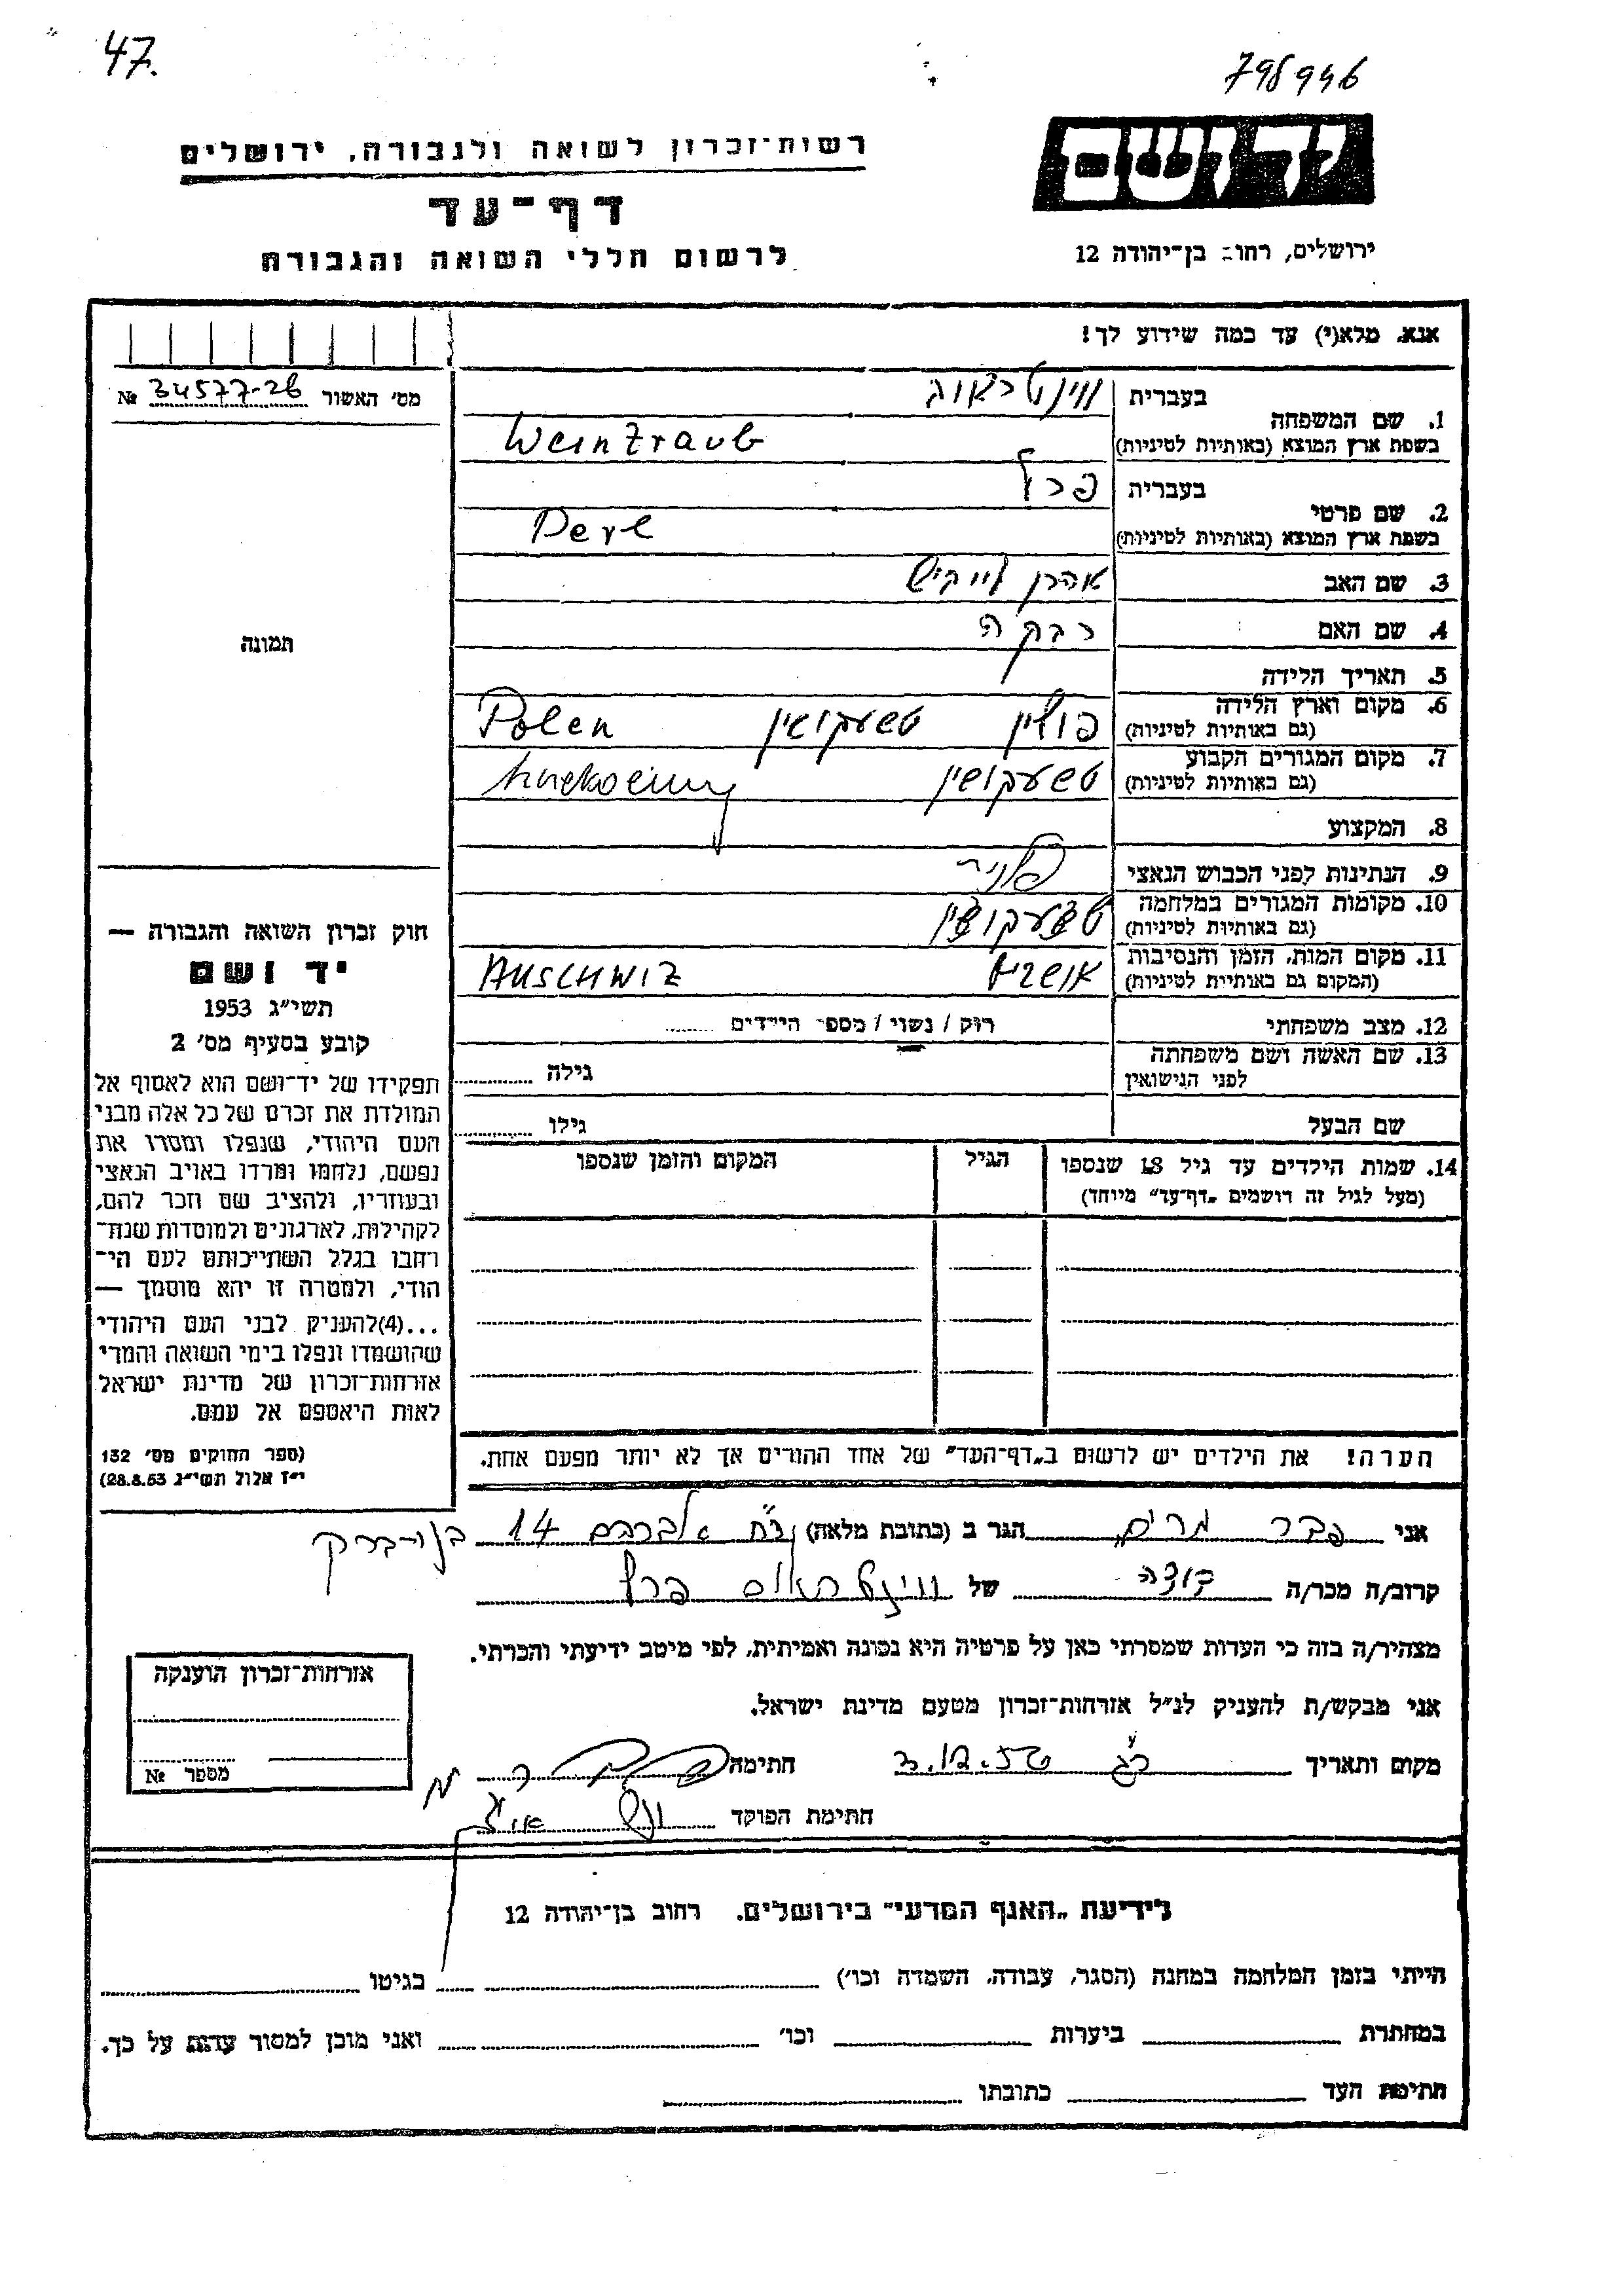 47.
798946
רשות־זכרון לשואה ולגבורה, ירושלים
דף־עד
לרשום חללי השואה והגבורה
יד ושם
ירושלים, רחוב בן־יהודה 12
אנא, מלא(י) עד כמה שידוע לך!
מס׳ האשור 34577-26 №
1. שם המשפחה
בעברית ווינטראוב
בשפת ארץ המוצא (באותיות לטיניות) Weintraub
2. שם פרטי
בעברית פרל
בשפת ארץ המוצא (באותיות לטיניות) Perl
3. שם האב אהרן
4. שם האם רבקה
5. תאריך הלידה
6. מקום וארץ הלידה
(גם באותיות לטיניות) פולין טשעקושין Polen
7. מקום המגורים הקבוע
(גם באותיות לטיניות) טשעקושין
8. המקצוע
9. הנתינות לפני הכבוש הנאצי
10. מקומות המגורים במלחמה
(גם באותיות לטיניות) טשעקושין
11. מקום המות, הזמן והנסיבות
(המקום גם באותיות לטיניות) AUSCHWIZ
12. מצב משפחתי רוק / נשוי / מספר הילדים
13. שם האשה ושם משפחתה
לפני הנישואין גילה
שם הבעל גילו
14. שמות הילדים עד גיל 18 שנספו
(מעל לגיל זה רושמים „דף־עד״ מיוחד)
הגיל
המקום והזמן שנספו
הערה! את הילדים יש לרשום ב„דף־העד״ של אחד ההורים אך לא יותר מפעם אחת.
תמונה
חוק זכרון השואה והגבורה —
יד ושם
תשי״ג 1953
קובע בסעיף מס׳ 2
תפקידו של יד־ושם הוא לאסוף אל
המולדת את זכרם של כל אלה מבני
העם היהודי, שנפלו ומסרו את
נפשם, נלחמו ומרדו באויב הנאצי
ובעוזריו, ולהציב שם וזכר להם,
לקהילות, לארגונים ולמוסדות שנח־
רבו בגלל השתייכותם לעם הי־
הודי, ולמטרה זו יהא מוסמך —
...(4)להעניק לבני העם היהודי
שהושמדו ונפלו בימי השואה והמרי
אזרחות־זכרון של מדינת ישראל
לאות היאספם אל עמם.
(ספר החוקים מס׳ 132
י״ז אלול תשי״ג 28.8.53)
אני פבר מרים הגר ב (כתובת מלאה) אברהם 14 בני־ברק
קרוב/ה מכר/ה דודה של ווינטראוב פרל
מצהיר/ה בזה כי העדות שמסרתי כאן על פרטיה היא נכונה ואמיתית, לפי מיטב ידיעתי והכרתי.
אני מבקש/ת להעניק לנ״ל אזרחות־זכרון מטעם מדינת ישראל.
מקום ותאריך חתימה
חתימת הפוקד
אזרחות־זכרון הוענקה
מספר №
לידיעת „האגף המדעי״ בירושלים, רחוב בן־יהודה 12
הייתי בזמן המלחמה במחנה (הסגר, עבודה, השמדה וכו׳) בגיטו
במחתרת ביערות וכו׳ ואני מוכן למסור עדות על כך.
חתימת העד כתובתו